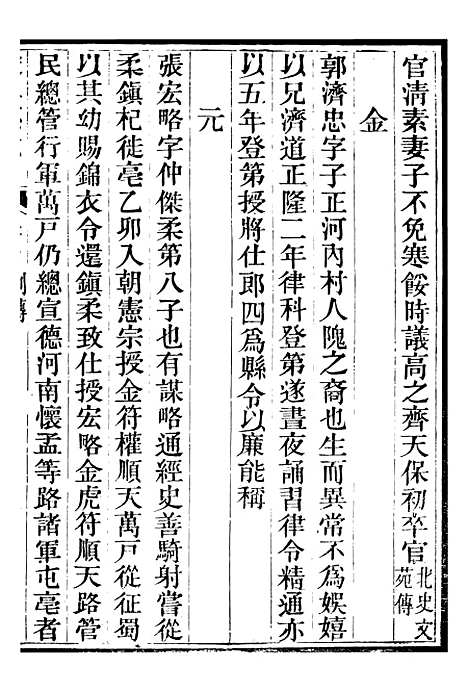 官淸素妻子不免寒餒時議高之齊天保初卒官北史文苑傳
金
郭濟忠字子正河內村人隗之裔也生而異常不爲娛嬉
以兄濟道正隆二年律科登第遂晝夜誦習律令精通亦
以五年登第授將仕郎四爲縣令以廉能稱
元
張宏略字仲傑柔第八子也有謀略通經史善騎射嘗從
柔鎭杞徙亳乙卯入朝憲宗授金符權順天萬戶從征蜀
以其幼賜錦衣令還鎭柔致仕授宏略金虎符順天路管
民總管行軍萬戶仍總宣德河南懷孟等路諸軍屯亳者